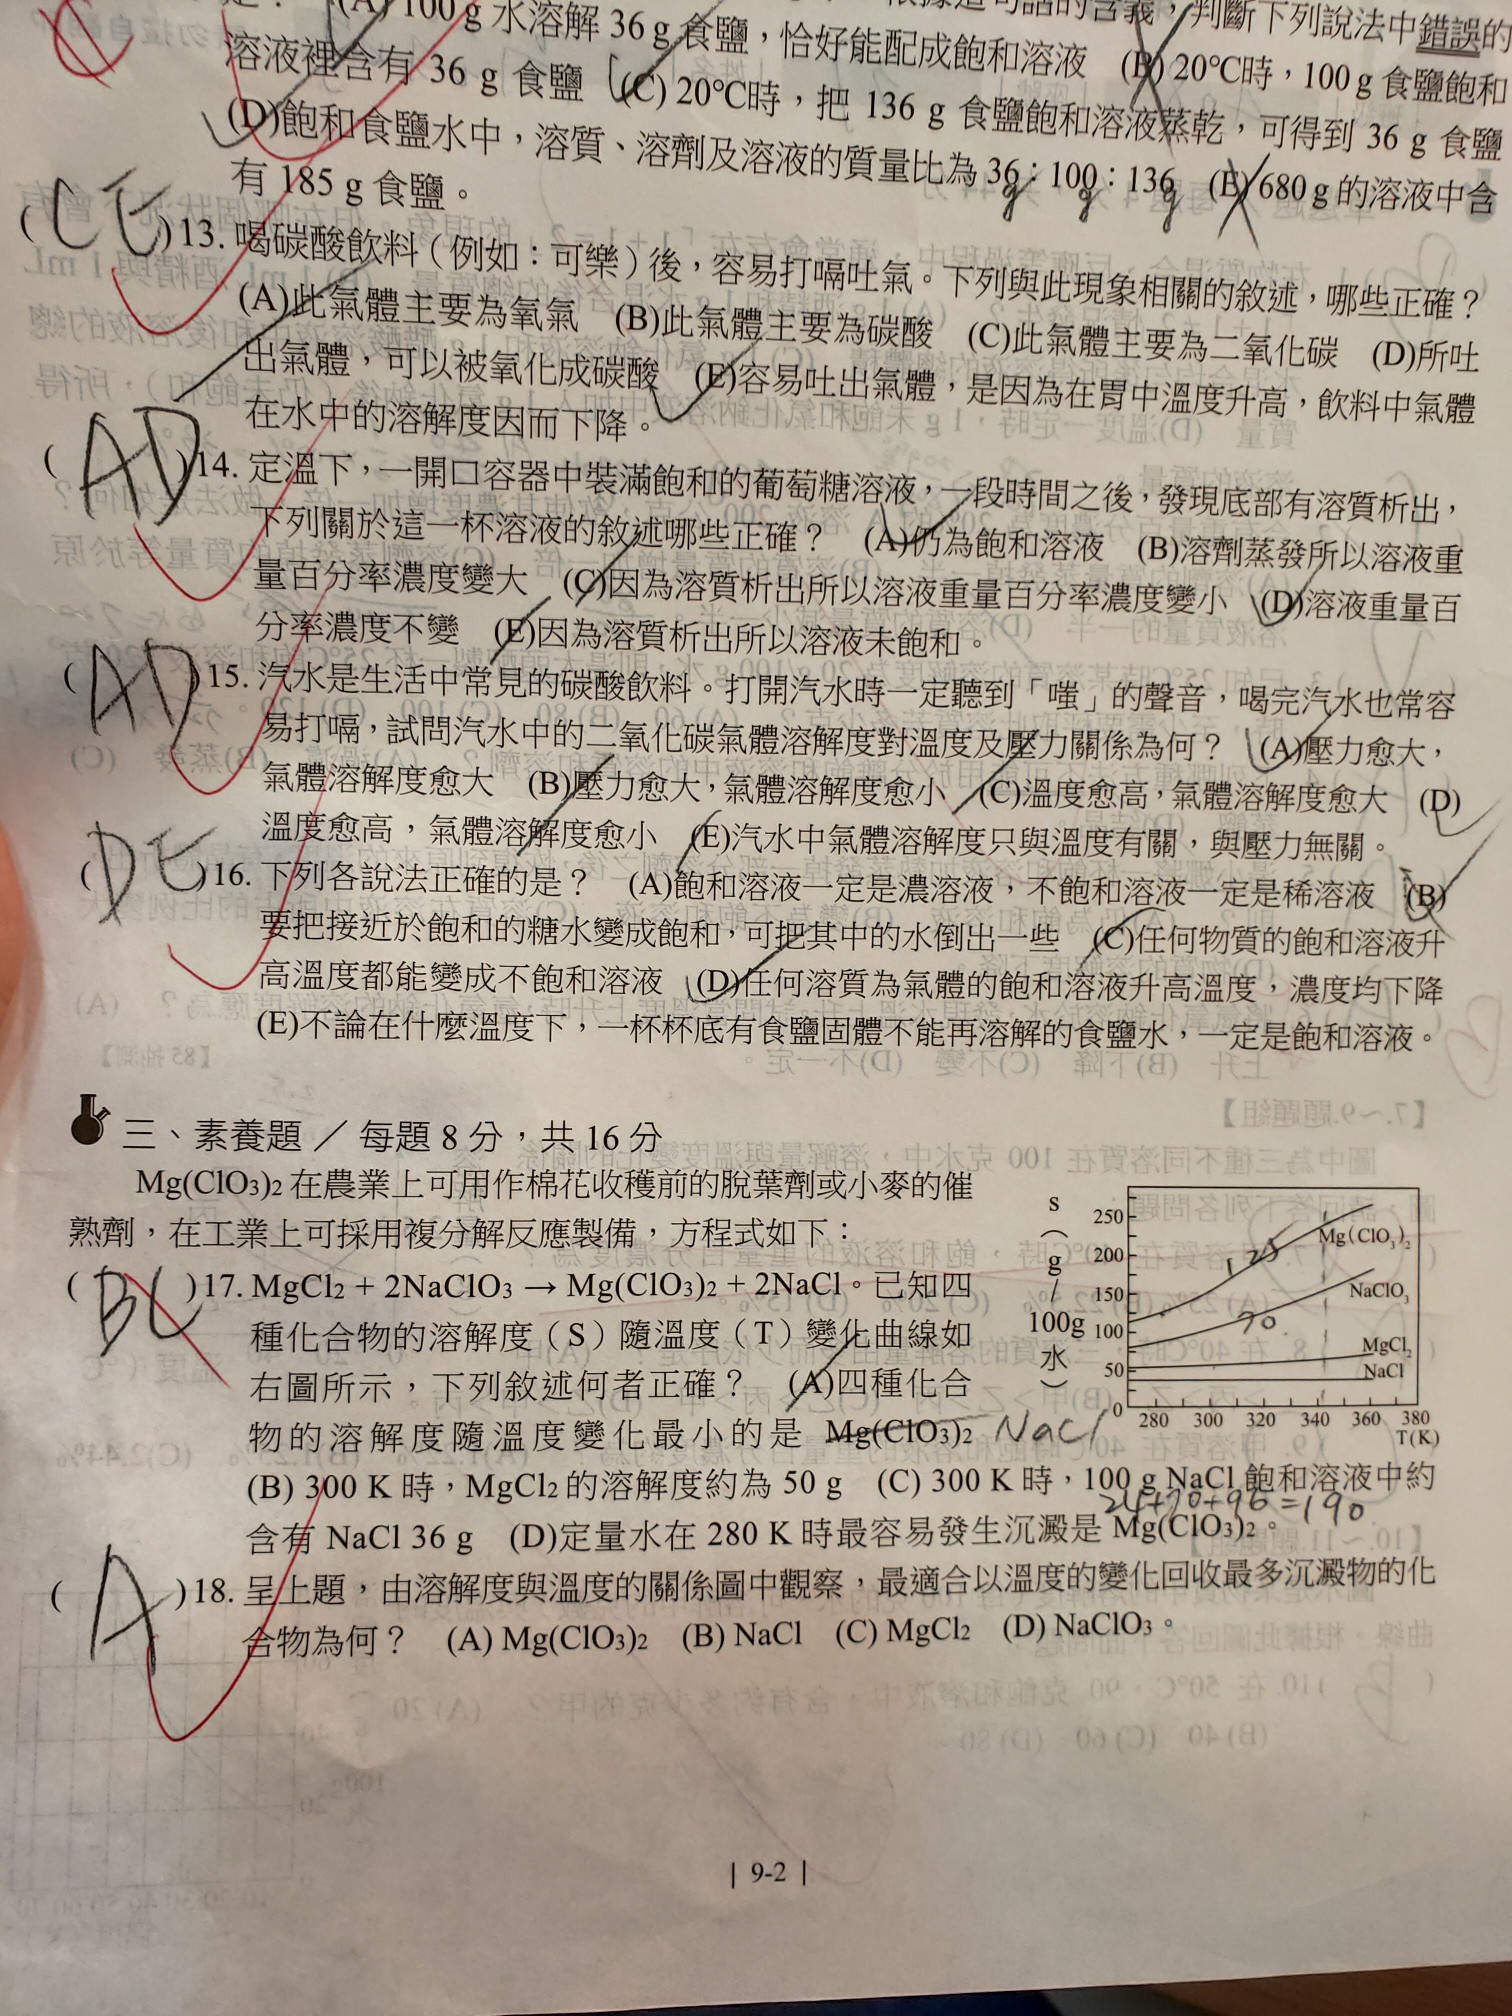 (A) 100 g 水溶解 36 g 食鹽，恰好能配成飽和溶液 (B) 20℃時，100 g 食鹽飽和
判斷下列說法中錯誤的
溶液裡含有 36 g 食鹽 (C) 20℃時，把 136 g 食鹽飽和溶液蒸乾，可得到 36 g 食鹽
(D)飽和食鹽水中，溶質、溶劑及溶液的質量比為 36：100：136 (E) 680 g 的溶液中含
g g g
有 185 g 食鹽。
( CE )13. 喝碳酸飲料（例如：可樂）後，容易打嗝吐氣。下列與此現象相關的敘述，哪些正確？
(A)此氣體主要為氧氣 (B)此氣體主要為碳酸 (C)此氣體主要為二氧化碳 (D)所吐
出氣體，可以被氧化成碳酸 (E)容易吐出氣體，是因為在胃中溫度升高，飲料中氣體
在水中的溶解度因而下降。
( AD )14. 定溫下，一開口容器中裝滿飽和的葡萄糖溶液，一段時間之後，發現底部有溶質析出，
下列關於這一杯溶液的敘述哪些正確？ (A)仍為飽和溶液 (B)溶劑蒸發所以溶液重
量百分率濃度變大 (C)因為溶質析出所以溶液重量百分率濃度變小 (D)溶液重量百
分率濃度不變 (E)因為溶質析出所以溶液未飽和。
( AD )15. 汽水是生活中常見的碳酸飲料。打開汽水時一定聽到「嗤」的聲音，喝完汽水也常容
易打嗝，試問汽水中的二氧化碳氣體溶解度對溫度及壓力關係為何？ (A)壓力愈大，
氣體溶解度愈大 (B)壓力愈大，氣體溶解度愈小 (C)溫度愈高，氣體溶解度愈大 (D)
溫度愈高，氣體溶解度愈小 (E)汽水中氣體溶解度只與溫度有關，與壓力無關。
( DE )16. 下列各說法正確的是？ (A)飽和溶液一定是濃溶液，不飽和溶液一定是稀溶液 (B)
要把接近於飽和的糖水變成飽和，可把其中的水倒出一些 (C)任何物質的飽和溶液升
高溫度都能變成不飽和溶液 (D)任何溶質為氣體的飽和溶液升高溫度，濃度均下降
(E)不論在什麼溫度下，一杯杯底有食鹽固體不能再溶解的食鹽水，一定是飽和溶液。
三、素養題／每題 8 分，共 16 分
Mg(ClO3)2 在農業上可用作棉花收穫前的脫葉劑或小麥的催
熟劑，在工業上可採用複分解反應製備，方程式如下：
( BC )17. MgCl2 + 2NaClO3 → Mg(ClO3)2 + 2NaCl。已知四
種化合物的溶解度（S）隨溫度（T）變化曲線如
右圖所示，下列敘述何者正確？ (A)四種化合
物的溶解度隨溫度變化最小的是 Mg(ClO3)2 NaCl
(B) 300 K 時，MgCl2 的溶解度約為 50 g (C) 300 K 時，100 g NaCl 飽和溶液中約
24+70+96=190
含有 NaCl 36 g (D)定量水在 280 K 時最容易發生沉澱是 Mg(ClO3)2。
S（g/100g水）
250
200
150
100
50
0
280 300 320 340 360 380
T(K)
Mg(ClO3)2
NaClO3
MgCl2
NaCl
125
70
( A )18. 呈上題，由溶解度與溫度的關係圖中觀察，最適合以溫度的變化回收最多沉澱物的化
合物為何？ (A) Mg(ClO3)2 (B) NaCl (C) MgCl2 (D) NaClO3。
| 9-2 |